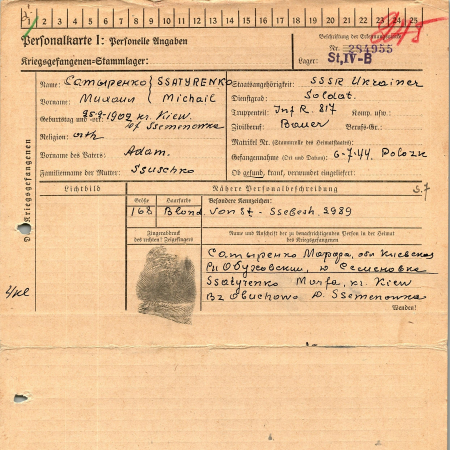 1 2 3 4 5 6 7 8 9 10 11 12 13 14 15 16 17 18 19 20 21 22 23 24 25
Personalkarte I: Personelle Angaben
Kriegsgefangenen=Stammlager:
Beschriftung der Erkennungsmarke
Nr. 284955
Lager: St,IV-B
Name: Сатыренко SSATYRENKO
Vorname: Михаил Michail
Geburtstag und -ort: 25-9-1902 kr. Kiew
Df Ssemenowka
Religion: orth
Vorname des Vaters: Adam.
Familienname der Mutter: Ssuschko
Staatsangehörigkeit: SSSR Ukrainer
Dienstgrad: Soldat.
Truppenteil: Inf R. 817 Komp. usw.:
Zivilberuf: Bauer Berufs-Gr.:
Matrikel Nr. (Stammrolle des Heimatstaates)
Gefangennahme (Ort und Datum): 6-7-44. Polozk
Ob gesund, krank, verwundet eingeliefert:
Des Kriegsgefangenen
Lichtbild
Nähere Personalbeschreibung
Größe Haarfarbe Besondere Kennzeichen:
168 Blond von St - Ssebesh 2989
Fingerabdruck
des rechten! Zeigefingers
Name und Anschrift der zu benachrichtigenden Person in der Heimat
des Kriegsgefangenen
Сатыренко Марфа, обл Киевская
Рн Обуховский, д Семеновка
Ssatyrenko Marfa, kr. Kiew
Bz Obuchowo D. Ssemenowka
Wenden!